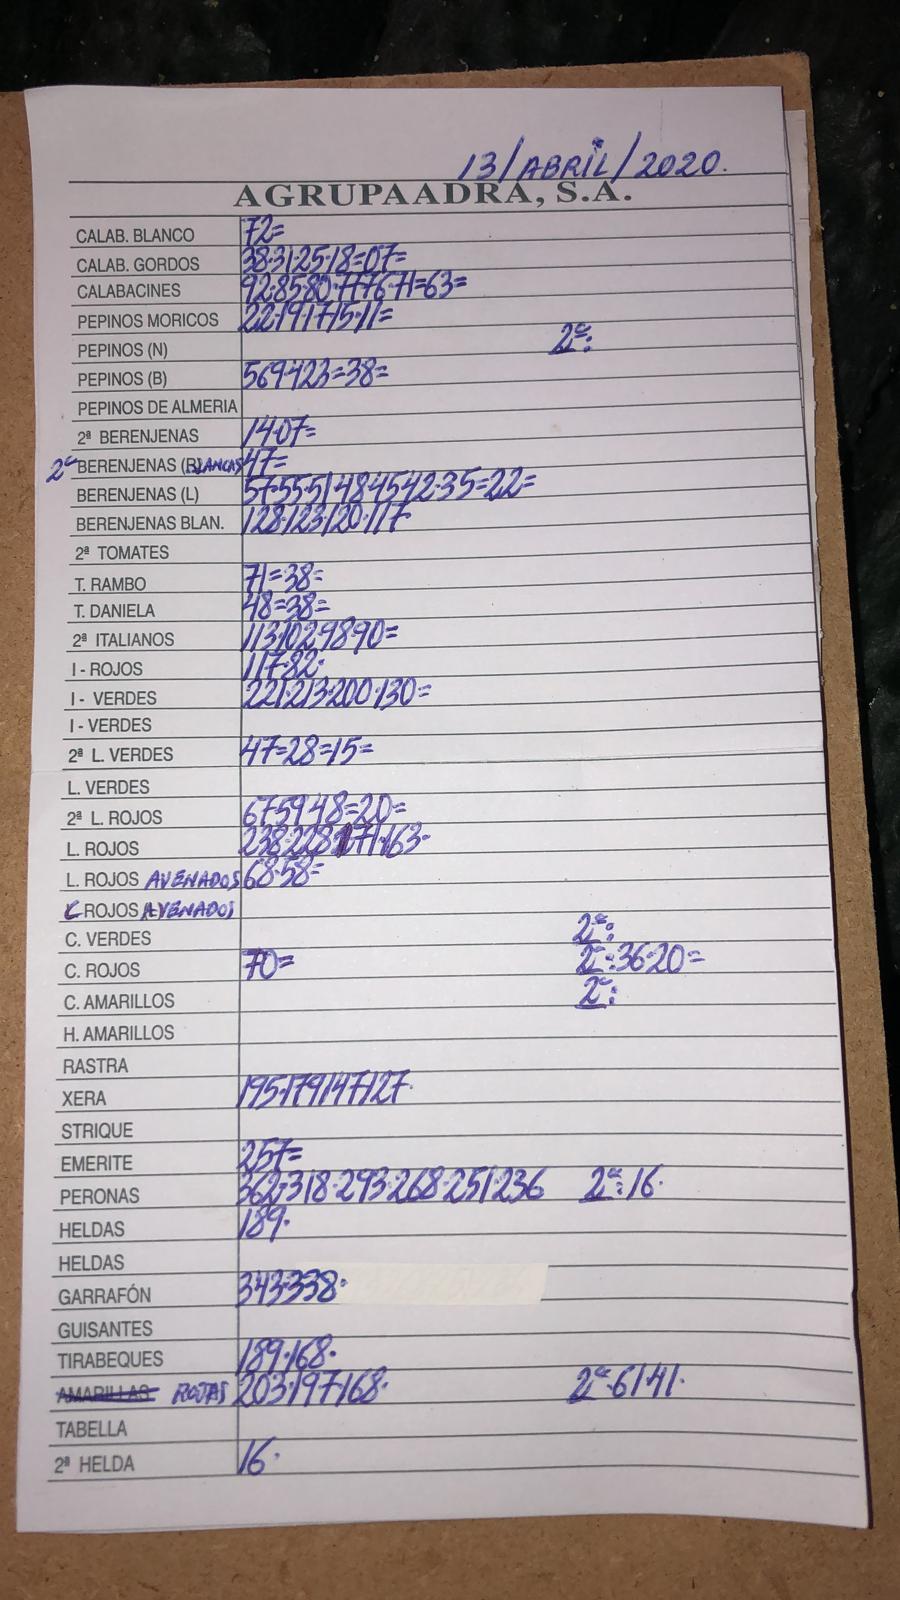 13/ABRIL/2020.
AGRUPAADRA, S.A.
CALAB. BLANCO 72=
CALAB. GORDOS 38·31·25·18=07=
CALABACINES 92·85·80·77·76·71=63=
PEPINOS MORICOS 22·19·17·15·11=
PEPINOS (N) 2ª:
PEPINOS (B) 56·94·23=38=
PEPINOS DE ALMERIA
2ª BERENJENAS 14·07=
2ª BERENJENAS (BLANCAS 47=
BERENJENAS (L) 57·55·51·48·45·42·35=22=
BERENJENAS BLAN. 128·123·120·117·
2ª TOMATES
T. RAMBO 71=38=
T. DANIELA 48=38=
2ª ITALIANOS 113·102·98·90=
I - ROJOS 117·82·
I - VERDES 221·213·200·130=
I - VERDES
2ª L. VERDES 47=28=15=
L. VERDES
2ª L. ROJOS 67·59·48=20=
L. ROJOS 238·228·171·163·
L. ROJOS AVENADOS 68·58=
C ROJOS AVENADOS
C. VERDES 2ª:
C. ROJOS 70= 2ª:36·20=
C. AMARILLOS 2ª:
H. AMARILLOS
RASTRA
XERA 195·179·147·127·
STRIQUE
EMERITE 257=
PERONAS 362·318·293·268·251·236 2ª:16·
HELDAS 189·
HELDAS
GARRAFÓN 343·338·
GUISANTES
TIRABEQUES 189·168·
AMARILLAS ROJAS 203·197·168· 2ª·61·41·
TABELLA
2ª HELDA 16·